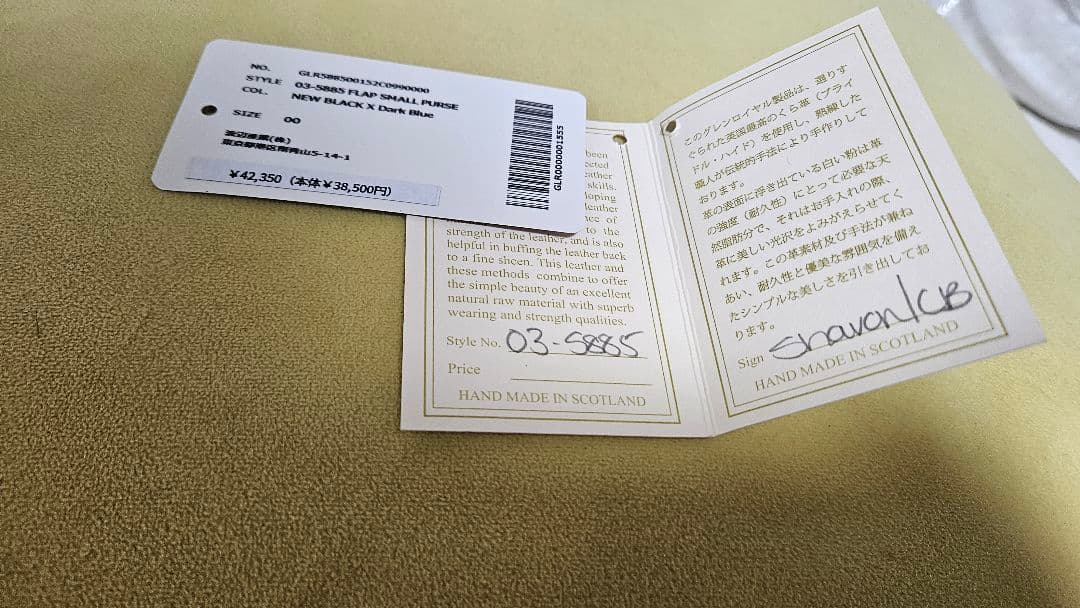 NO. GLR588500152C0990000
STYLE 03-5885 FLAP SMALL PURSE
COL. NEW BLACK X Dark Blue
SIZE 00
渡辺産業(株)
東京都港区南青山5-14-1
¥42,350 (本体¥38,500円)
GLR0000001555
been
ected
eather
skills.
loping
leather
nce of
to the
strength of the leather, and is also
helpful in buffing the leather back
to a fine sheen. This leather and
these methods combine to offer
the simple beauty of an excellent
natural raw material with superb
wearing and strength qualities.
Style No. 03-5885
Price
HAND MADE IN SCOTLAND
このグレンロイヤル製品は、選りす
ぐられた英国最高のくら革(ブライ
ドル・ハイド)を使用し、熟練した
職人が伝統的手法により手作りして
おります。
革の表面に浮き出ている白い粉は革
の強度(耐久性)にとって必要な天
然脂肪分で、それはお手入れの際、
革に美しい光沢をよみがえらせてく
れます。この革素材及び手法が兼ね
あい、耐久性と優美な雰囲気を備え
たシンプルな美しさを引き出してお
ります。
Sign Sharon/CB
HAND MADE IN SCOTLAND